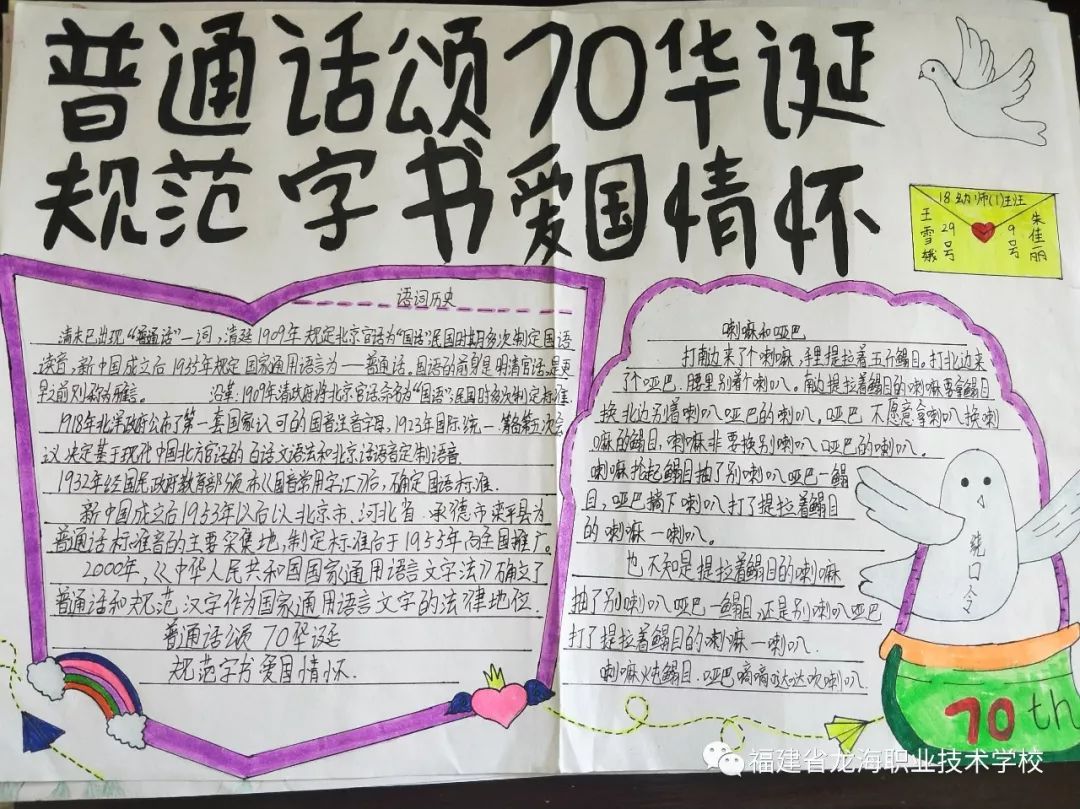 普通话颂70华诞
规范字书爱国情怀
18幼师(1)班
王雪娥 29号
9号 朱佳丽
语词历史
清末已出现“普通话”一词,清廷1909年规定北京官话为“国语”,民国时期多次制定国语
读音,新中国成立后1955年规定国家通用语言为一普通话。国语的前身是明清官话,更
早之前则称为雅言。 沿革:1909年清政府将北京官话命名为“国语”,民国时多次制定标准.
1918年北洋政府公布了第一套国家认可的国音注音字母,1923年国际统一筹备第五次会
议决定基于现代中国北方官话的白话文语法和北京话语音定制语音
1932年经国民政府教育部颁布《国音常用字汇》后,确定国语标准.
新中国成立后1953年以后以北京市.河北省.承德市滦平县为
普通话标准音的主要采集地,制定标准后于1955年向全国推广。
2000年,《中华人民共和国国家通用语言文字法》确立了
普通话和规范汉字作为国家通用语言文字的法律地位.
普通话颂70华诞
规范字书爱国情怀.
喇嘛和哑巴
打南边来了个喇嘛,手里提拉着五斤鳎目。打北边来
了个哑巴.腰里别着个喇叭。南边提拉着鳎目的喇嘛要拿鳎目
换北边别着喇叭哑巴的喇叭。哑巴不愿意拿喇叭换喇
嘛的鳎目,喇嘛非要换别喇叭哑巴的喇叭。
喇嘛抡起鳎目抽了别喇叭哑巴一鳎
目,哑巴摘下喇叭打了提拉着鳎目
的喇嘛一喇叭。
也不知是提拉着鳎目的喇嘛
抽了别喇叭哑巴一鳎目.还是别喇叭哑巴
打了提拉着鳎目的喇嘛一喇叭.
喇嘛炖鳎目.哑巴嘀嘀哒哒吹喇叭.
绕口令
70th
福建省龙海职业技术学校